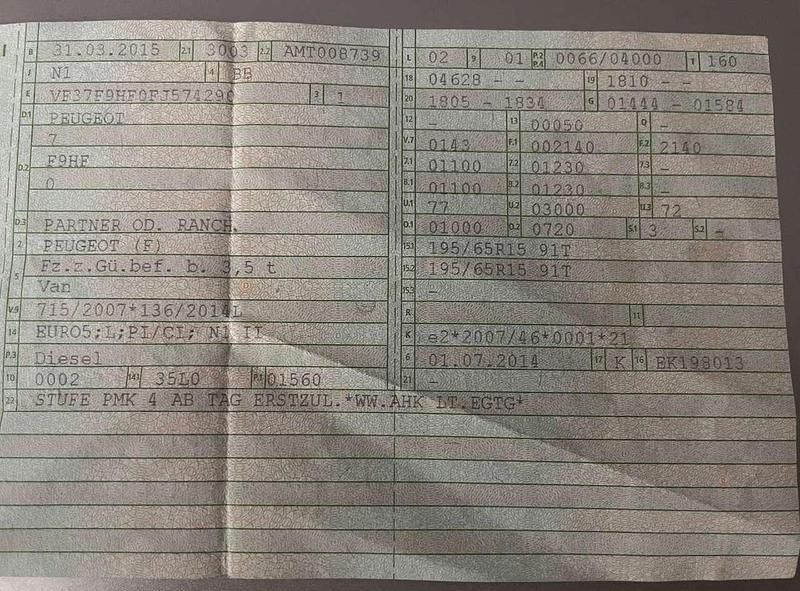 B 31.03.2015 2.1 3003 2.2 AMT008739
J N1 4 BB
E VF37F9HF0FJ574290 3 1
D.1 PEUGEOT
7
D.2 F9HF
0
D.3 PARTNER OD. RANCH.
2 PEUGEOT (F)
5 Fz.z.Gü.bef. b. 3,5 t
Van
V.9 715/2007*136/2014L
14 EURO5;L;PI/CI; N1 II
P.3 Diesel
10 0002 14.1 35L0 P.1 01560
22 STUFE PMK 4 AB TAG ERSTZUL.*WW.AHK LT.EGTG*
L 02 9 01 P.2 P.4 0066/04000 T 160
18 04628 - - 19 1810 - -
20 1805 - 1834 G 01444 - 01584
12 - 13 00050 Q -
V.7 0143 F.1 002140 F.2 2140
7.1 01100 7.2 01230 7.3 -
8.1 01100 8.2 01230 8.3 -
U.1 77 U.2 03000 U.3 72
O.1 01000 O.2 0720 S.1 3 S.2 -
15.1 195/65R15 91T
15.2 195/65R15 91T
15.3 -
R 11
K e2*2007/46*0001*21
6 01.07.2014 17 K 16 EK198013
21 -